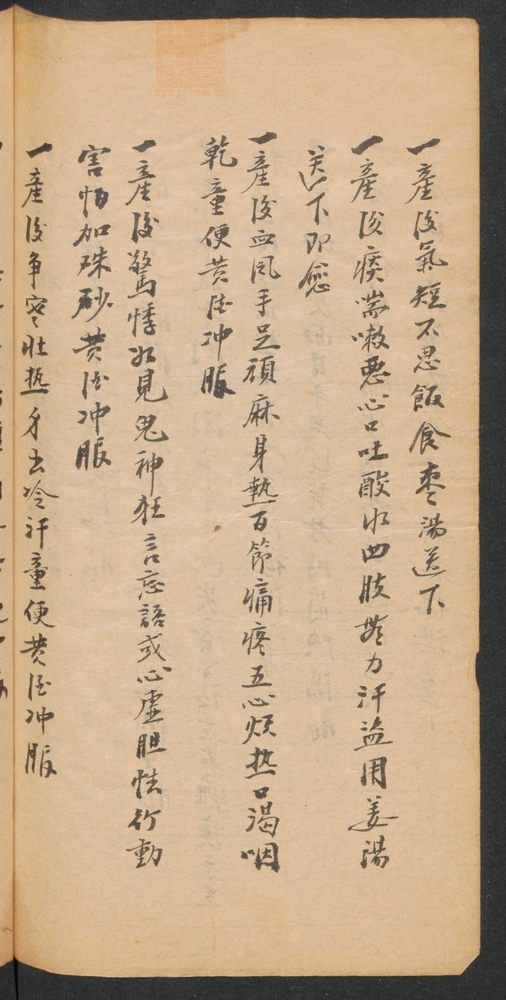 一產後氣短不思飯食枣湯送下
一產後痰喘嗽恶心口吐酸水四肢無力汗盗用姜湯
送下即愈
一產後血風手足頑麻身熱百節痛疼五心烦热口渴咽
乾童便黄酒冲服
一產後驚悸如見鬼神狂言忘語或心虛胆怯行動
害怕加硃砂黄酒冲服
一產後争寒壮热身出冷汗童便黄酒冲服